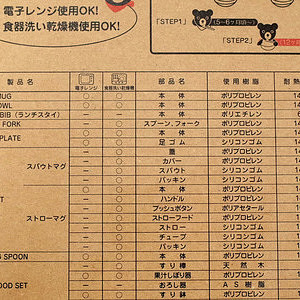 電子レンジ使用OK!
食器洗い乾燥機使用OK!
「STEP1」
(5~6ヶ月頃~)
「STEP2」
製品名 電子レンジ 食器洗い乾燥機 部品名 使用樹脂
MUG ○ ○ 本体 ポリプロピレン
○ ○ 本体 ポリプロピレン
BIB (ランチスタイ) 本体 ポリエチレン
FORK スプーン、フォーク ポリプロピレン
PLATE 本体 ポリプロピレン
足ゴム シリコンゴム
蓋 ポリプロピレン
スパウトマグ カバー ポリプロピレン
スパウト シリコンゴム
パッキン シリコンゴム
本体 ポリプロピレン
ハンドル ポリプロピレン
プッシュボタン ポリアセタール
ストローマグ ストローフード ポリプロピレン
ストロー シリコンゴム
チューブ シリコンゴム
パッキン シリコンゴム
SPOON 本体 ポリプロピレン
すり棒 天然木
果汁しぼり器 ポリプロピレン
OOD SET おろし器 AS樹脂
すり鉢 ポリプロピレン